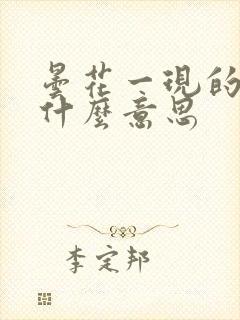 曇花一現的
什麼意思
李定邦